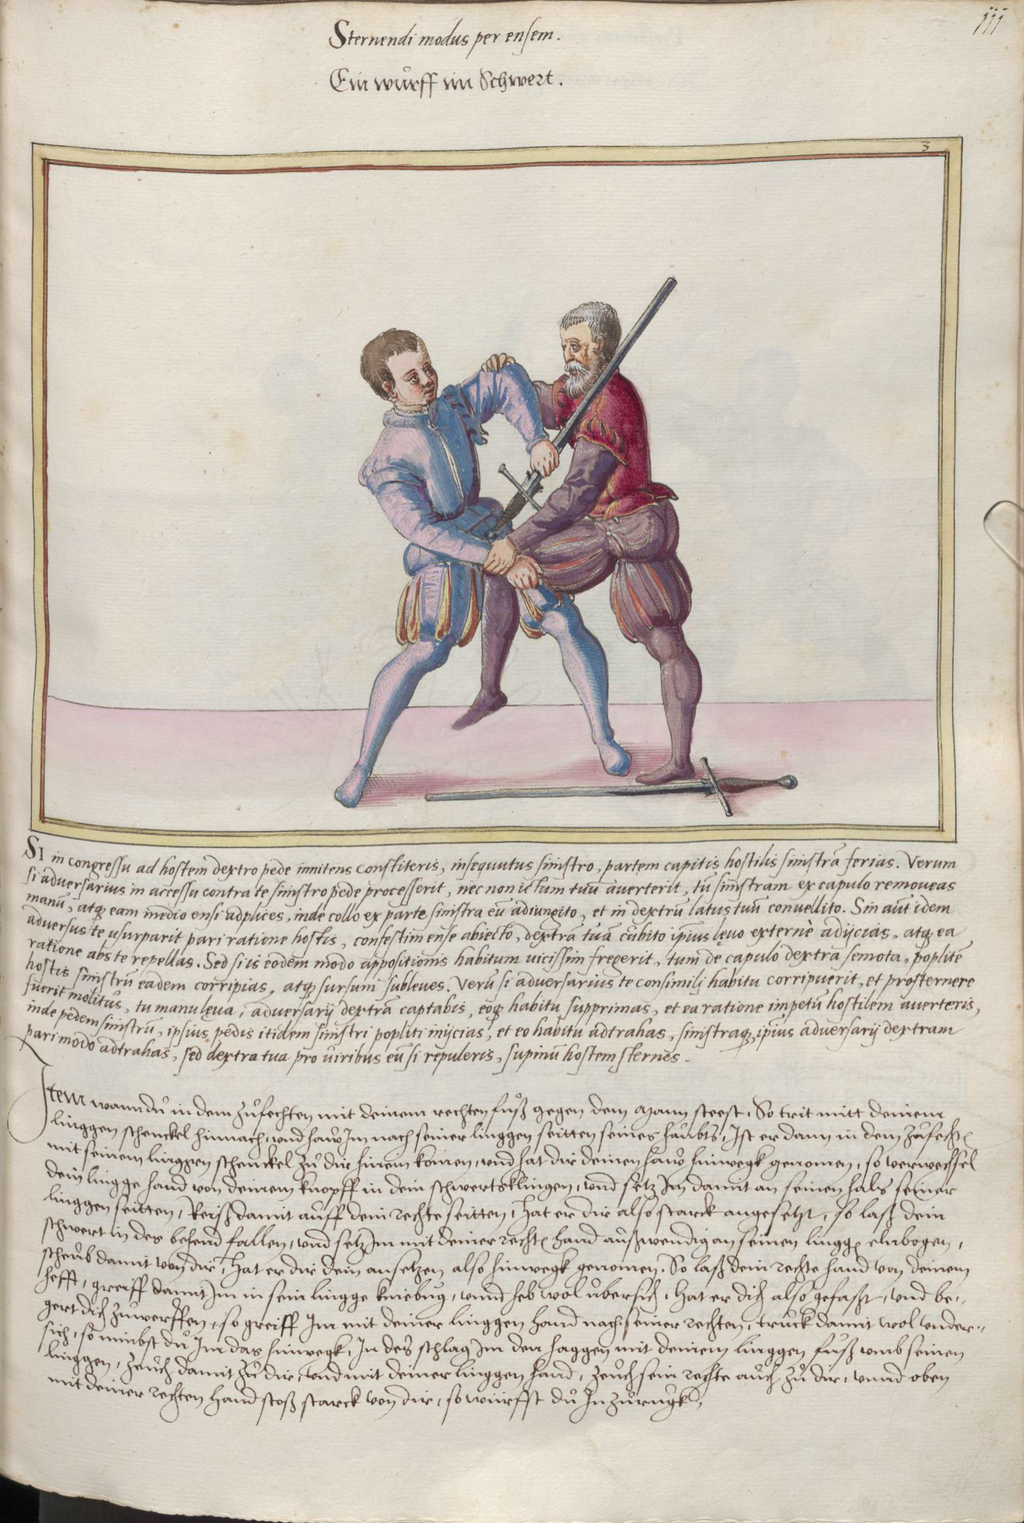 iii
Sternendi modus per ensem.
Ein wurff im Schwert.
3
SI in congressu ad hostem dextro pede innitens constiteris, insequutus sinistro, partem capitis hostilis sinistrã ferias. Verum
si adversarius in accessu contra te sinistro pede processerit, nec non ictum tuũ averterit, tũ sinistram ex capulo removeas
manũ, atq eam medio ensi adplices, inde collo ex parte sinistra eũ adiungito, et in dextrũ latus tuũ convellito. Sin aũt idem
adversus te usurparit pari ratione hostis, confestim ense abiecto, dextrã tuã cubito ipsius lęvo externe adijcias, atq ea
ratione abs te repellas. Sed si is eodem modo appositionis habitum vicissim fregerit, tum de capulo dextra semota, poplitẽ
hostis sinistrũ eadem corripias, atq sursum subleves. Verũ si adversarius te consimili habitu corripuerit, et prosternere
fuerit molitus, tu manu lęva, adversarij dextrã captabis, eoq habitu supprimas, et ea ratione impetũ hostilem averteris,
inde pedem sinistrũ, ipsius pedis itidem sinistri popliti inijcias, et eo habitu adtrahas, sinistraq ipsius adversarij dextram
pari modo adtrahas, sed dextra tua pro viribus eũ si repuleris, supinũ hostem sternes.
Item wann dů in dem zůfechten mit deinem rechten fůß gegen dem Mann steest, So trit mitt deinem
linggen schenckel hinnach, und haw Im nach seiner linggen seitten seines haubts, Ist er dann in dem zůfechtẽ
mit seinem linggen schenckel zů dir hinein komen, und hat dir deinen haw hinwegk genomen, so verwechsel
dein lingge hand von deinem knopff in dein schwertsklingen, und setz Im damit an seinen hals seiner
linggen seitten, Reiß damit auff dein rechte seitten, hat er dir also starck angesetzt, so laß dein
schwert in des behend fallen, und setz Im mit deiner rechtẽ hand außwendig an seinen linggẽ elnbogen,
scheub damit von dir, hat er dir dein ansetzen also hinwegk genomen, So laß dein rechte hand von deinem
hefft, greiff damit Im in sein lingge kniebüg, unnd heb wol übersich, hat er dich also gefasst, und be-
gert dich zůwerffen, so greiff Im mit deiner linggen hand nach seiner rechten, truck damit wol under-
sich, so nimbst dů Im das hinwegk, In des schlag Im den haggen mit deinem linggen fůß umb seinen
linggen, zeuch damit zů dir, und mit deiner linggen hand, zeuch sein rechte auch zů dir, unnd oben
mit deiner rechten hand stoß starck von dir, so wurffst dů In zurugk,